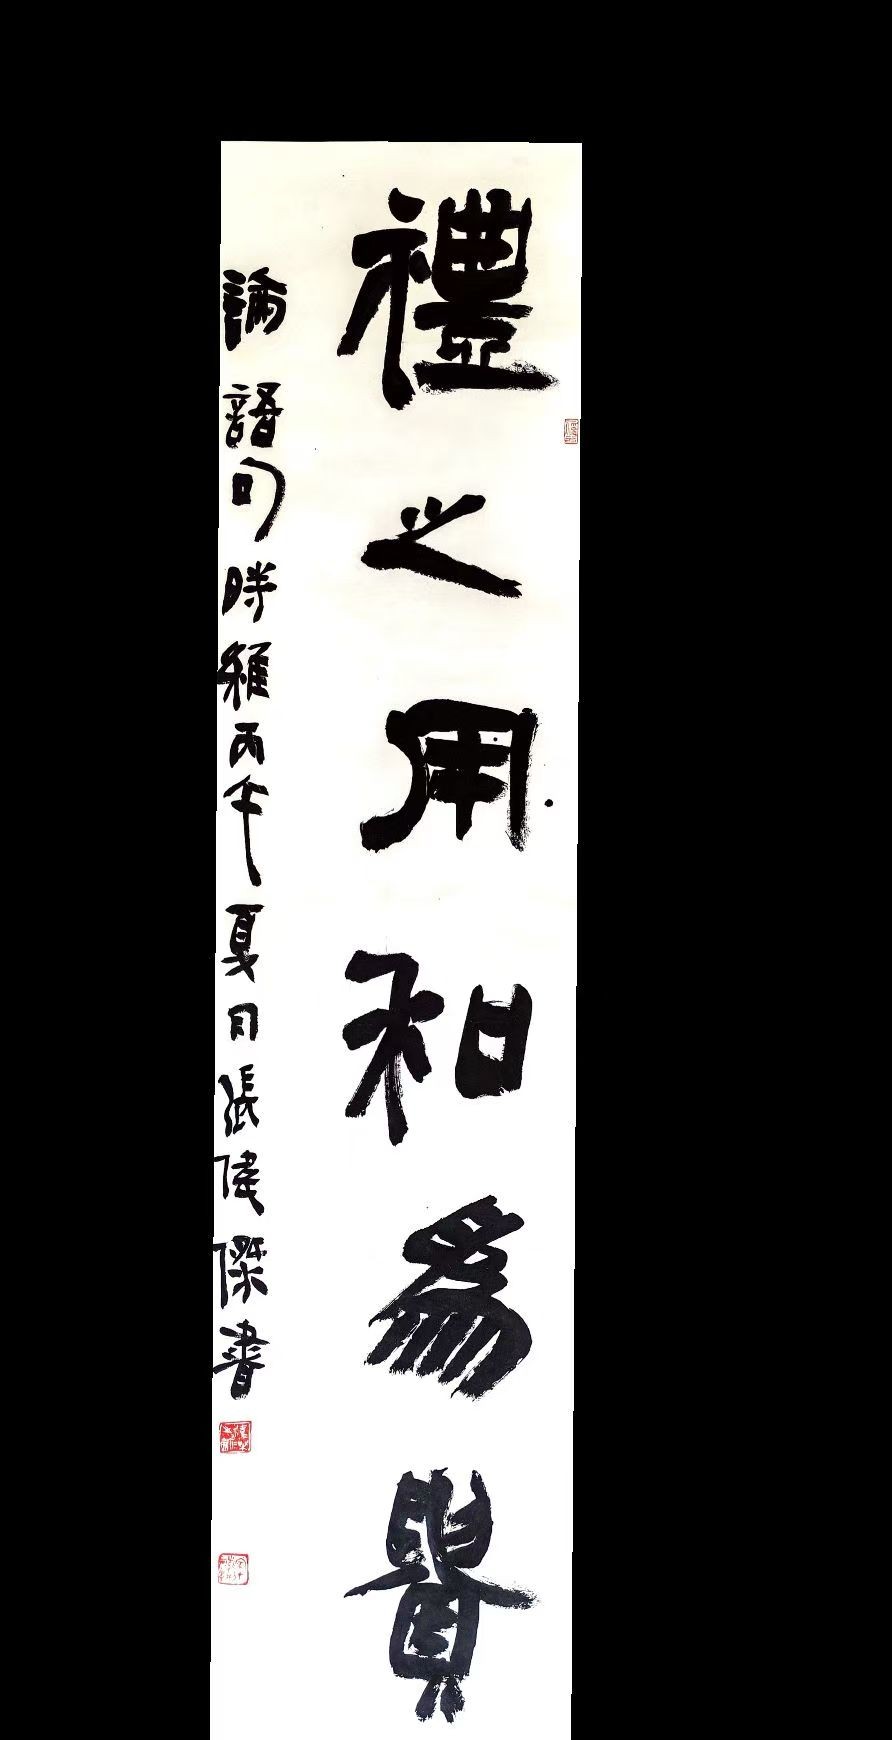 禮之用和為貴
論語句時維丙午夏月張偉傑書